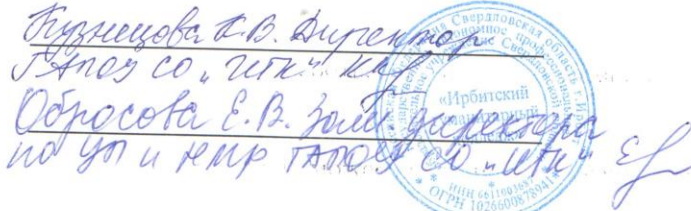 Кузнецова К.В. Директор
ГАПОУ СО „ИГК“
Обросова Е.В. Зам. директора
по УП и НМР ГАПОУ СО „ИГК“
Свердловская область г.
«Ирбитский
гуманитарный
ОГРН 1026600878941